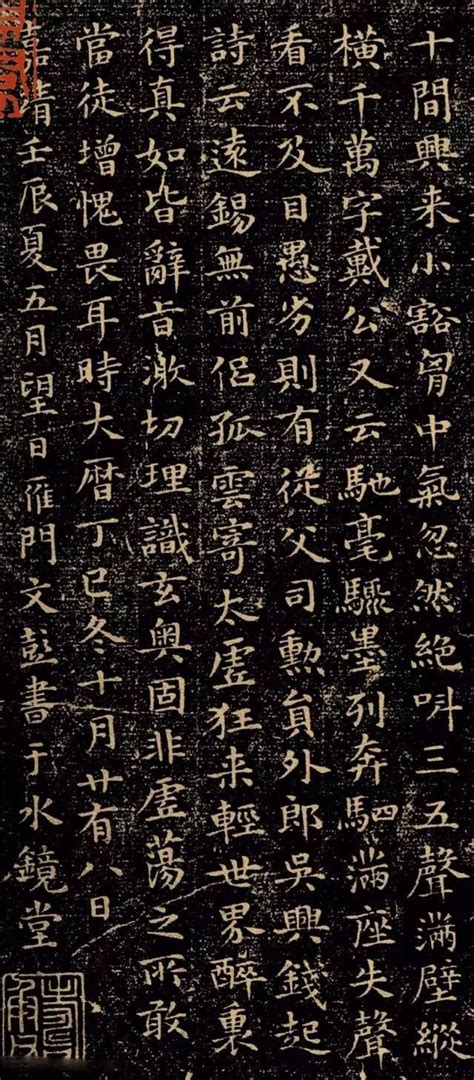 十間興来小豁胷中氣忽然絶呌三五聲滿壁縱
橫千萬字戴公又云馳毫驟墨列奔駟滿座失聲
看不及目愚劣則有從父司勲員外郎吳興錢起
詩云遠錫無前侶孤雲寄太虛狂来輕世界醉裏
得真如皆辭旨激切理識玄奧固非虛蕩之所敢
當徒增愧畏耳時大暦丁巳冬十月廿有八日
嘉靖壬辰夏五月望日雁門文彭書于水鏡堂